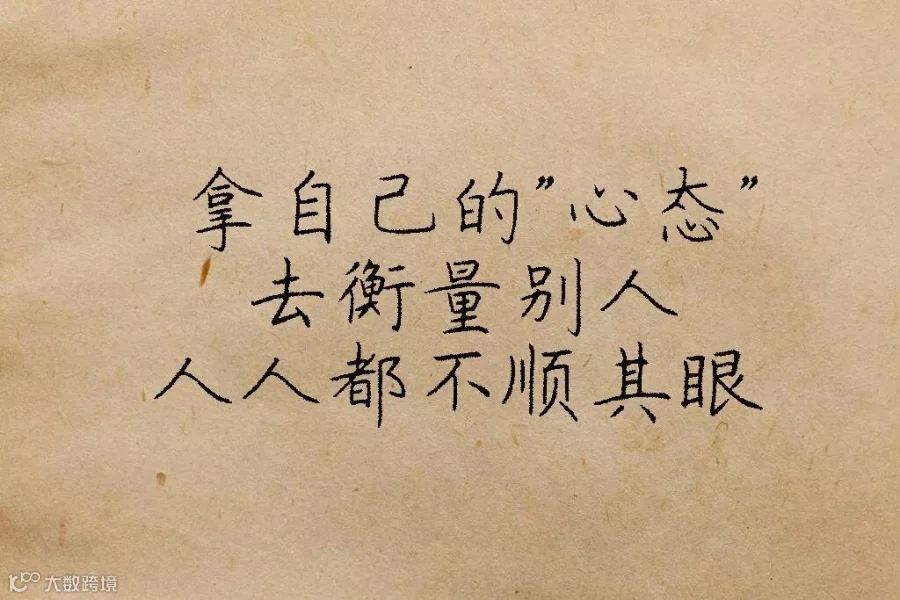 拿自己的"心态"
去衡量别人
人人都不顺其眼
大数跨境